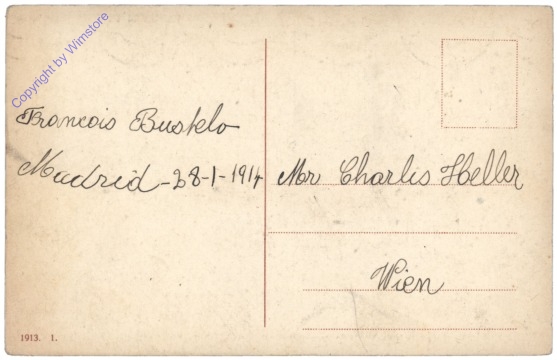 Copyright by Wimstore
Francois Busklo
Madrid - 28-1-1914
Mr Charlis Heller
Wien
1913. 1.